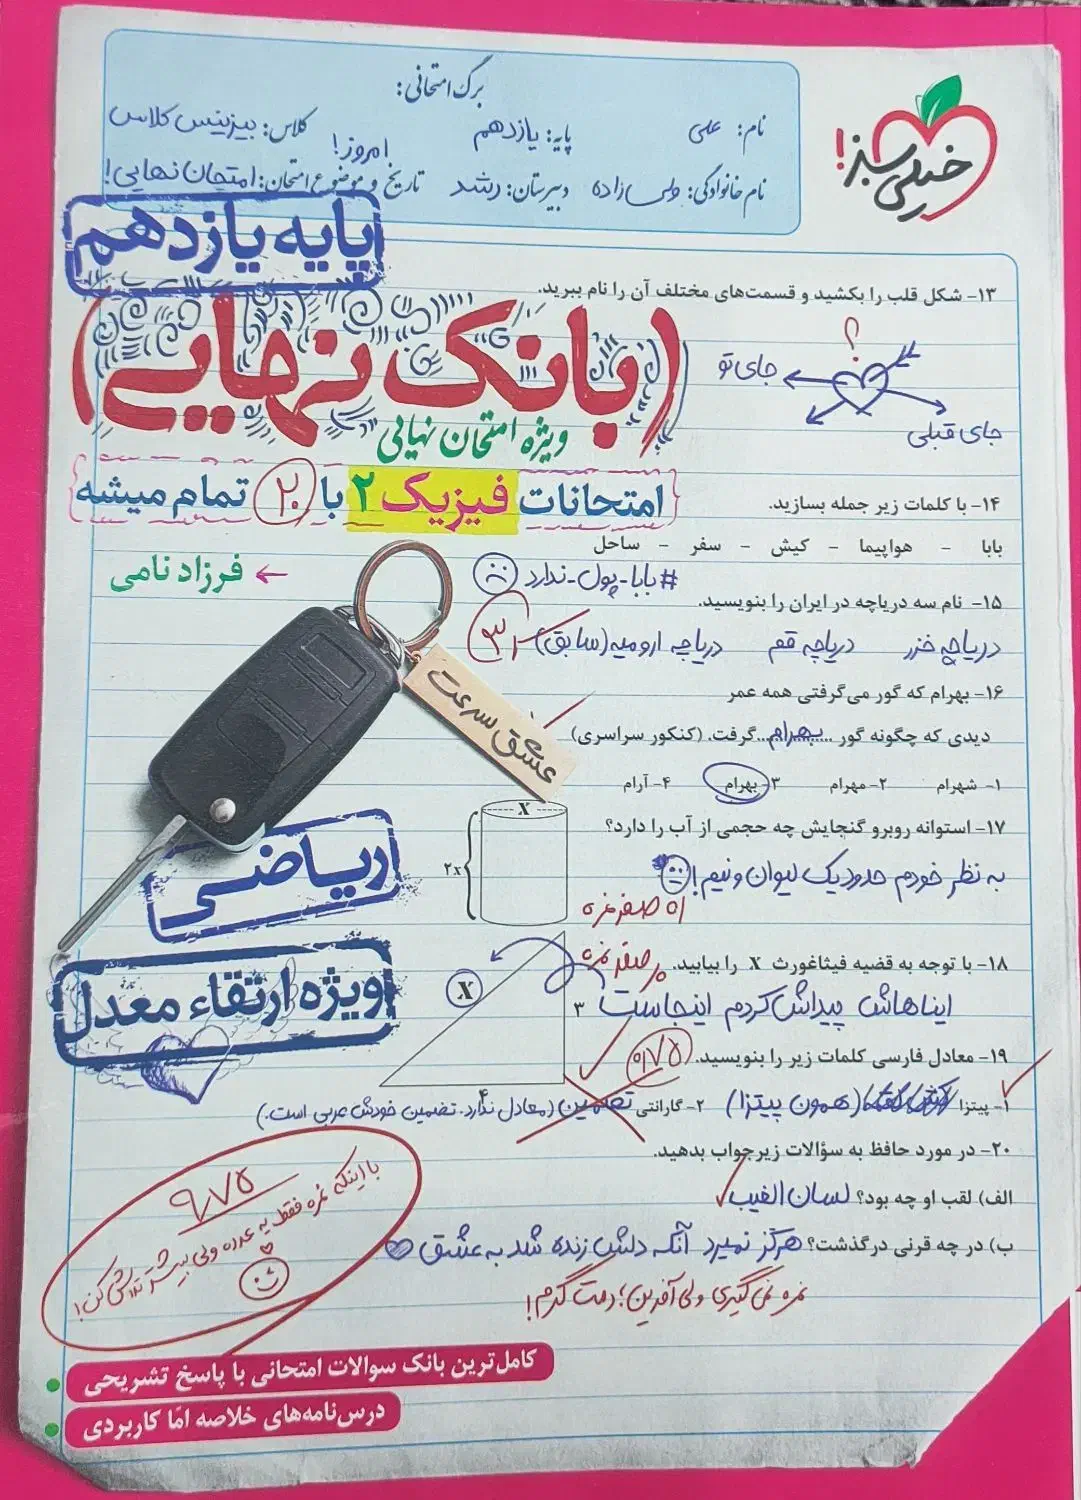 برگ امتحانی:
نام: علی
پایه: یازدهم
کلاس: بیزینس کلاس
نام خانوادگی: ولی زاده
دبیرستان: رشد
تاریخ و موضوع امتحان: امتحان نهایی!
امروز!
خیلی سبز!
پایه یازدهم
۱۳- شکل قلب را بکشید و قسمت‌های مختلف آن را نام ببرید.
(بانک نهایی)
؟
جای تو
جای قبلی
ویژه امتحان نهایی
امتحانات فیزیک ۲ با ۲۰ تمام میشه
فرزاد نامی
۱۴- با کلمات زیر جمله بسازید.
بابا - هواپیما - کیش - سفر - ساحل
#بابا-پول-ندارد
۱۵- نام سه دریاچه در ایران را بنویسید.
دریاچه خزر دریاچه قم دریاچه ارومیه (سابق)
۱۶- بهرام که گور می‌گرفتی همه عمر
دیدی که چگونه گور ...بهرام... گرفت. (کنکور سراسری)
۱- شهرام ۲- مهرام ۳- بهرام ۴- آرام
عشق سرعت
۱۷- استوانه روبرو گنجایش چه حجمی از آب را دارد؟
X
۲x
به نظر خودم حدود یک لیوان و نیم!
صفر نمره
ریاضی
۱۸- با توجه به قضیه فیثاغورث X را بیابید.
صفر نمره
ایناهاش پیداش کردم اینجاست
X
۳
۴
ویژه ارتقاء معدل
۱۹- معادل فارسی کلمات زیر را بنویسید.
۰/۷۵
۱- پیتزا (همون پیتزا) ۲- گارانتی تضمین (معادل ندارد. تضمین خودش عربی است.)
۲۰- در مورد حافظ به سؤالات زیر جواب بدهید.
الف) لقب او چه بود؟ لسان الغیب
ب) در چه قرنی درگذشت؟ هرگز نمیرد آنکه دلش زنده شد به عشق
نمره نمی‌گیری ولی آفرین؛ دمت گرم!
۹/۷۵
با اینکه نمره فقط یه عدده ولی بیشتر تلاش کن!
کامل‌ترین بانک سوالات امتحانی با پاسخ تشریحی
درس‌نامه‌های خلاصه امّا کاربردی